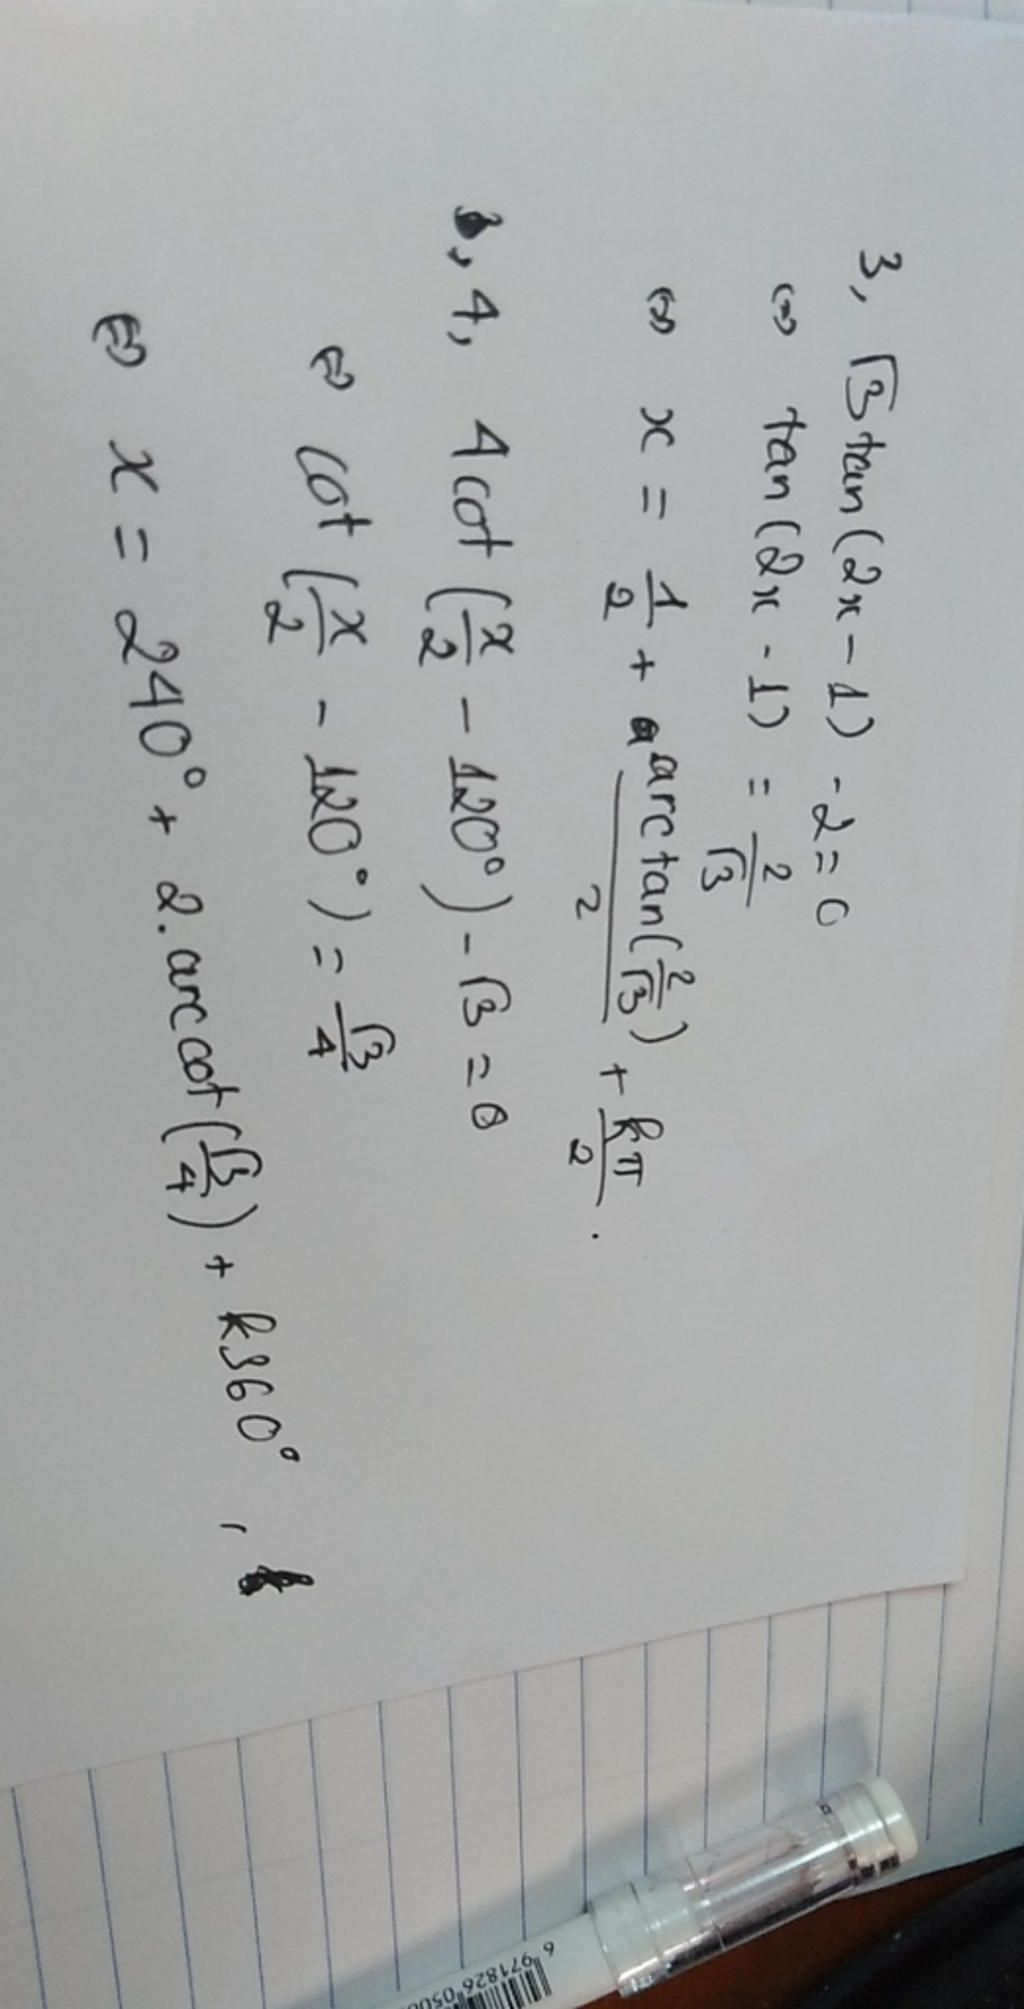 3, √3 tan(2x - 1) - 2 = 0
⇔ tan(2x - 1) = 2/√3
⇔ x = 1/2 + arctan(2/√3)/2 + kπ/2 .
, 4, 4 cot(x/2 - 120°) - √3 = 0
⇔ cot(x/2 - 120°) = √3/4
⇔ x = 240° + 2.arccot(√3/4) + k360° ,
6 971826 050